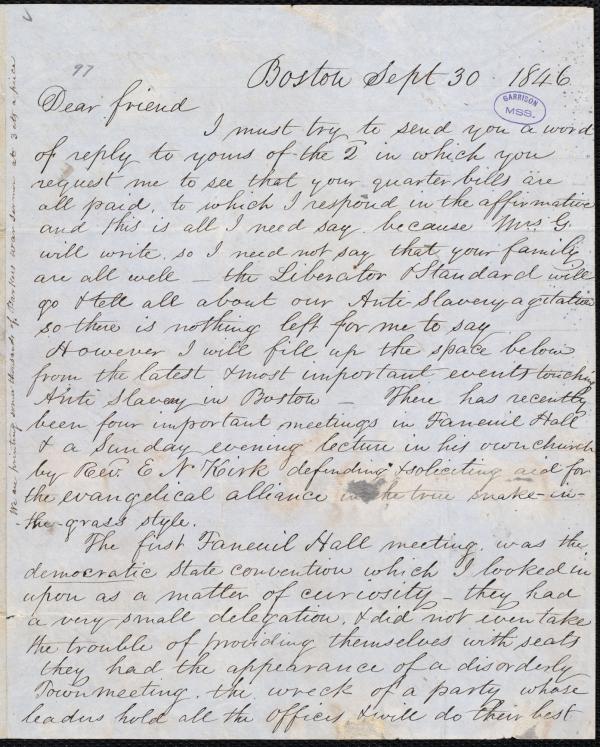 97
Boston Sept 30 1846
GARRISON
MSS.
Dear friend
I must try to send you a word
of reply to yours of the 2 in which you
request me to see that your quarter bills are
all paid, to which I respond in the affirmative
and this is all I need say, because Mrs G.
will write, so I need not say that your family
are all well – the Liberator & Standard will
go & tell all about our Anti-Slavery agitation
so there is nothing left for me to say
However I will fill up the space below
from the latest & most important events touching
Anti Slavery in Boston – There has recently
been four important meetings in Faneuil Hall
& a Sunday evening lecture in his own church
by Rev. E N Kirk defending & soliciting aid for
the evangelical alliance in the true snake-in-
the-grass style.
The first Faneuil Hall meeting was the
democratic State convention which I looked in
upon as a matter of curiosity – they had
a very small delegation, & did not even take
the trouble of providing themselves with seats
they had the appearance of a disorderly
Town meeting. the wreck of a party whose
leaders hold all the offices & will do their best
We are printing some thousands of Parkers war sermon at 3 cts a piece